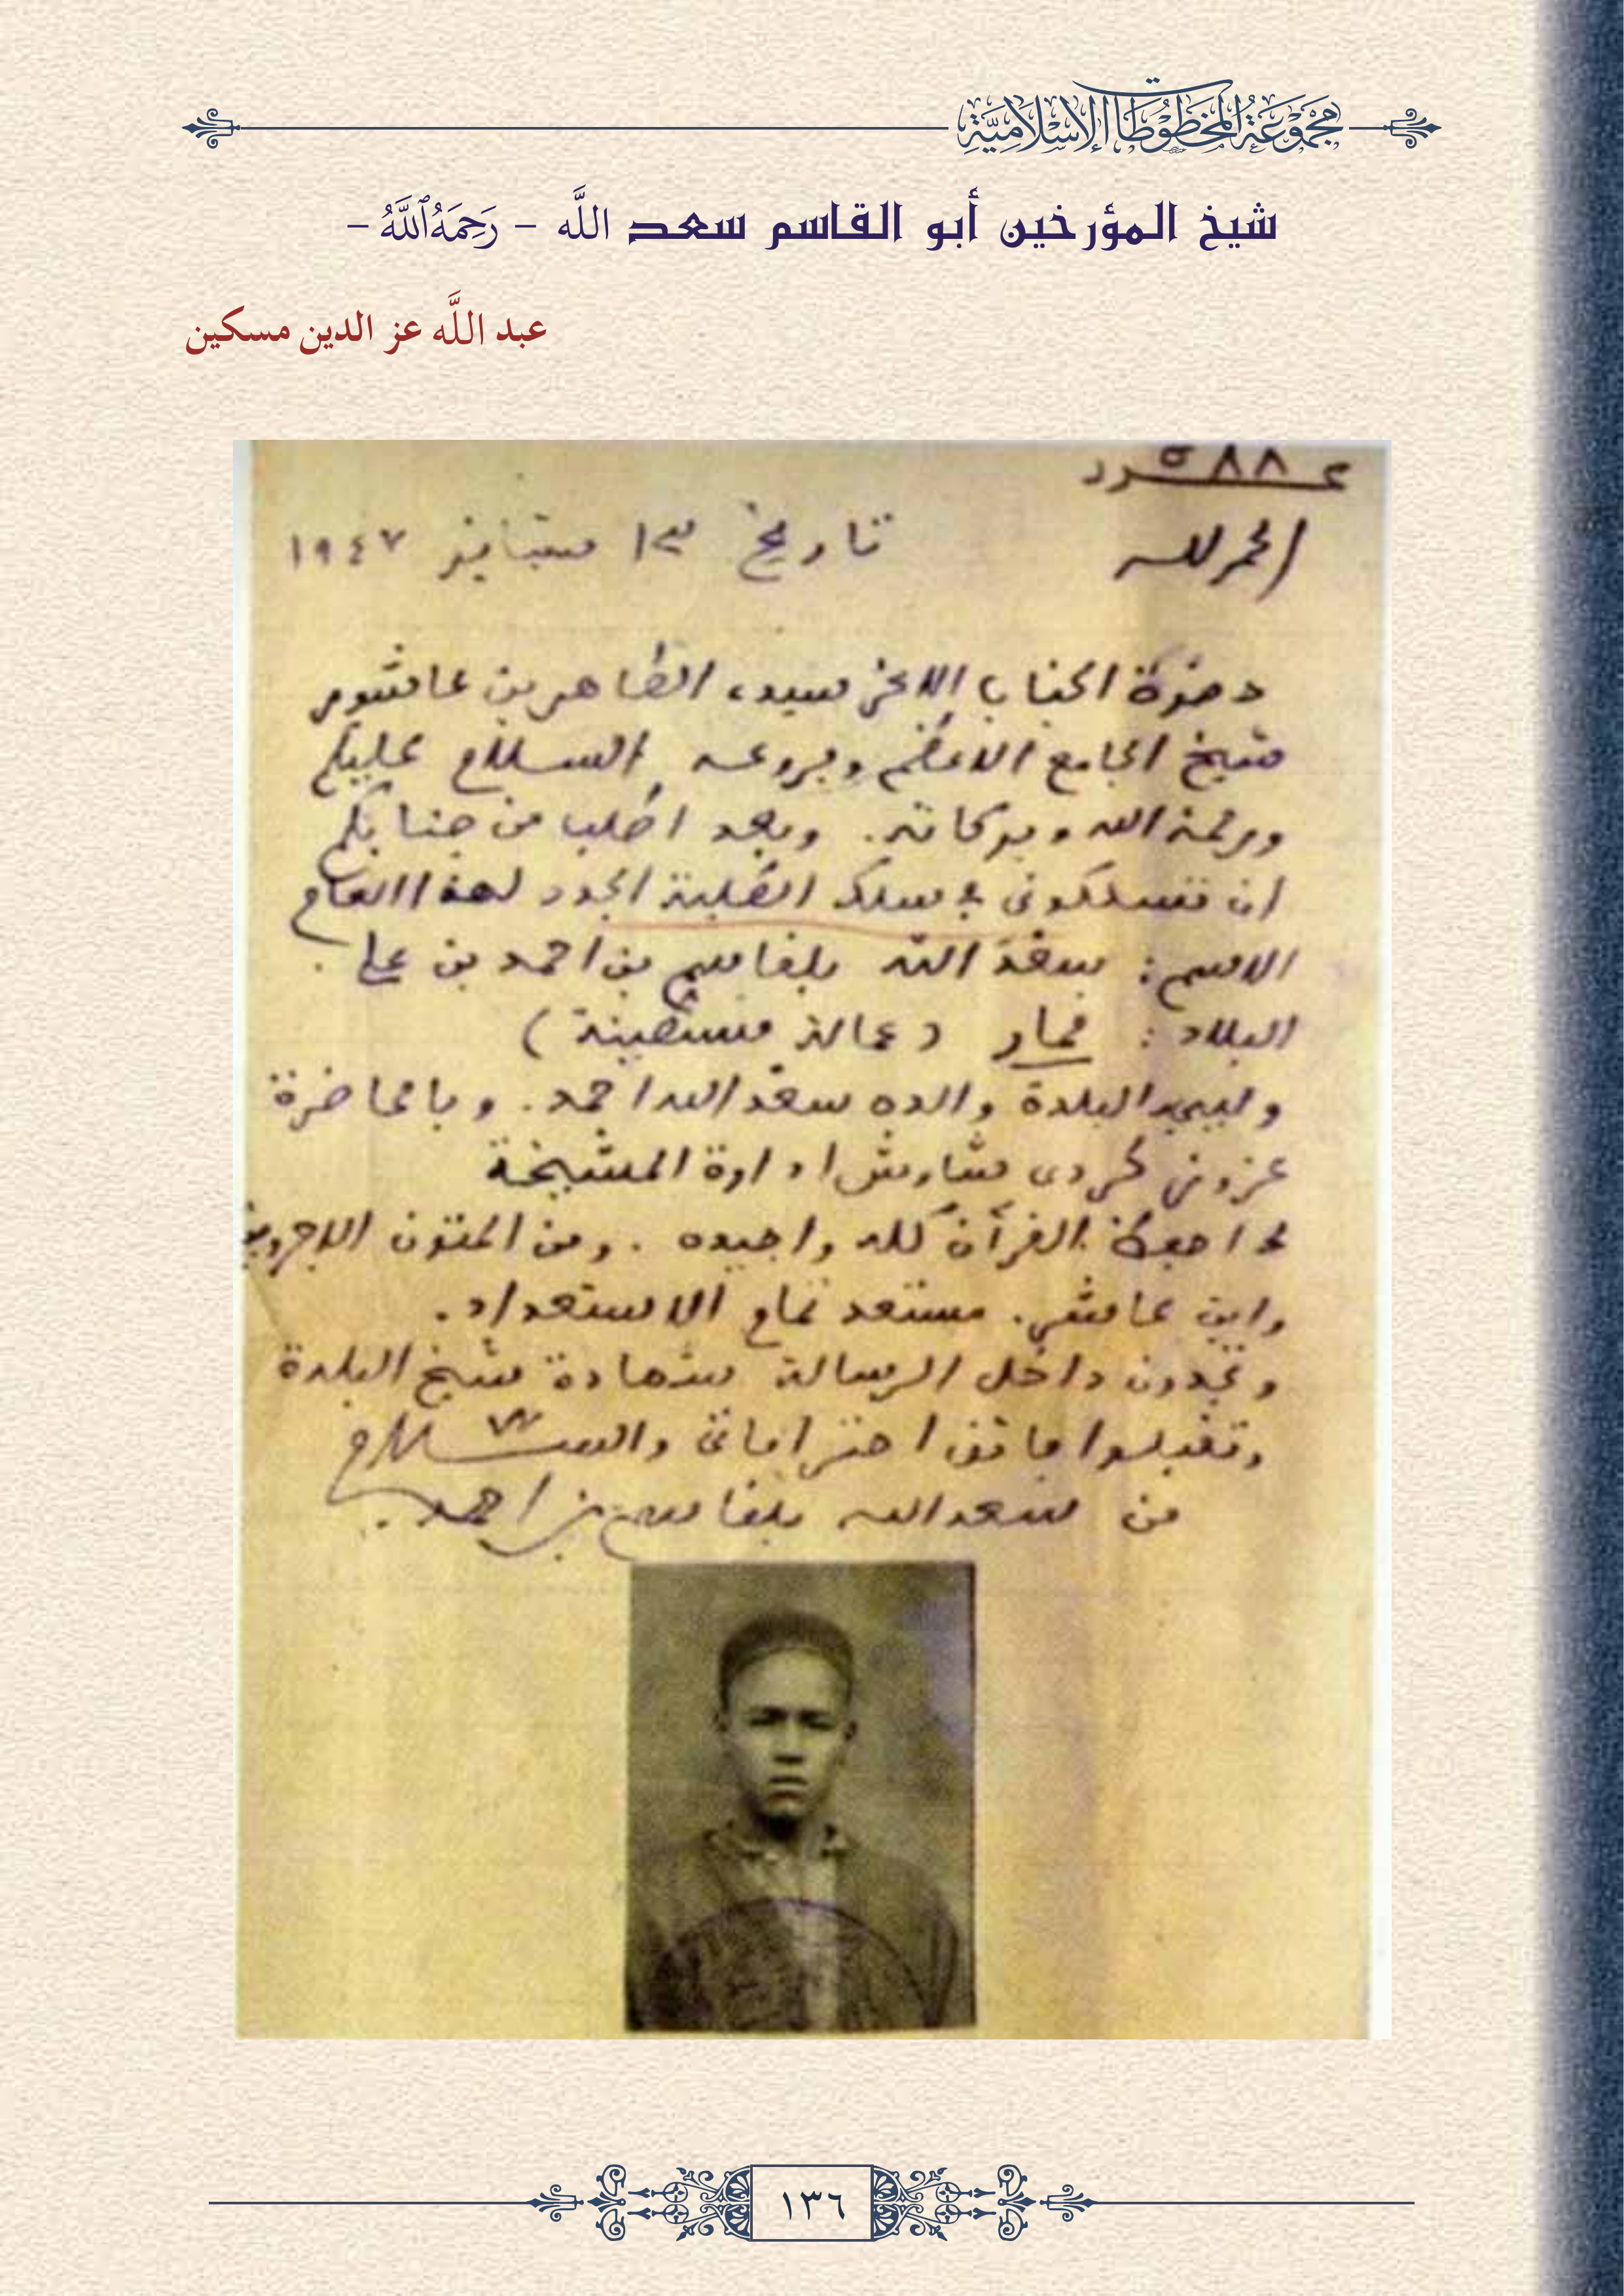 مَجْمُوْعَةُ المَخْطُوْطَاتِ الإِسْلَامِيَّةِ
شيخ المؤرخين أبو القاسم سعد اللَّه – رَحِمَهُ ٱللَّهُ –
عبد اللَّه عز الدين مسكين
٥٨٨
الحمد لله تاريخ ١٣ سبتانبر ١٩٤٧
حضرة الجناب الاعز سيدي الطاهر بن عاشور
شيخ الجامع الاعظم وفروعه السلام عليكم
ورحمة الله وبركاته. وبعد اطلب من جنابكم
ان تسلكوني في سلك الطلبة الجدد لهذا العام
الاسم: سعد الله بلقاسم بن احمد بن علي
البلاد: قمار (عمالة قسنطينة)
البلدة والده سعد الله احمد. وبالحاضرة
شاوش ادارة المشيخة
القرآن كله واجيده. ومن المتون الاجرومية
وابن عاشر. مستعد تمام الاستعداد.
وتجدون داخل الرسالة شهادة شيخ البلدة
وتقبلوا فائق احتراماتي والسلام
من سعد الله بلقاسم بن احمد
١٣٦